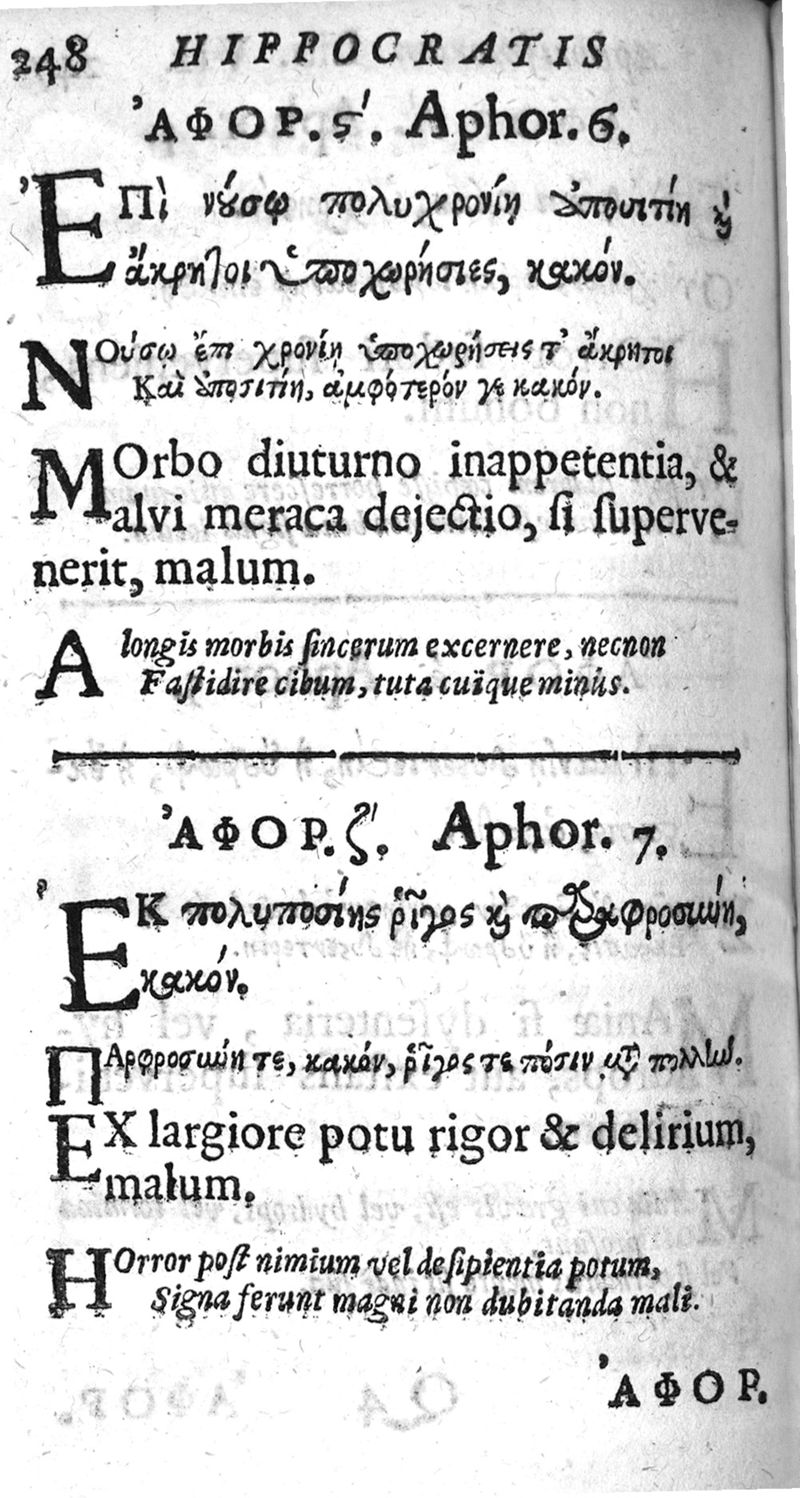 248 HIPPOCRATIS
ἈΦΟΡ. ϛʹ. Aphor. 6.
ἘΠὶ νούσῳ πολυχρονίῃ ἀποσιτίη καὶ
ἄκρητοι ὑποχωρήσιες, κακόν.
ΝΟύσῳ ἔπι χρονίῃ ὑποχωρήσεις τ' ἄκρητοι
Καὶ ἀποσιτίη, ἀμφότερόν γε κακόν.
MOrbo diuturno inappetentia, &
alvi meraca dejectio, ſi ſuperve-
nerit, malum.
A longis morbis ſincerum excernere, necnon
Faſtidire cibum, tuta cuïque minùs.
ἈΦΟΡ. ζʹ. Aphor. 7.
ἘΚ πολυποσίης ῥῖγος καὶ παραφροσύνη,
κακόν.
ΠΑρφροσύνη τε, κακόν, ῥῖγός τε πόσιν μετὰ πολλήν.
EX largiore potu rigor & delirium,
malum.
HOrror poſt nimium vel deſipientia potum,
Signa ferunt magni non dubitanda mali.
ἈΦΟΡ.